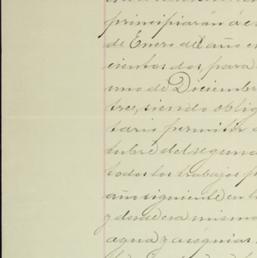 principiarán á c
de Enero del año
cientos dos para
uno de Diciembre
tres, siendo oblig
tario permitir
tubre del segun
todos los trabajos p
año siguiente en l
y desde esa misma
agua y acequias